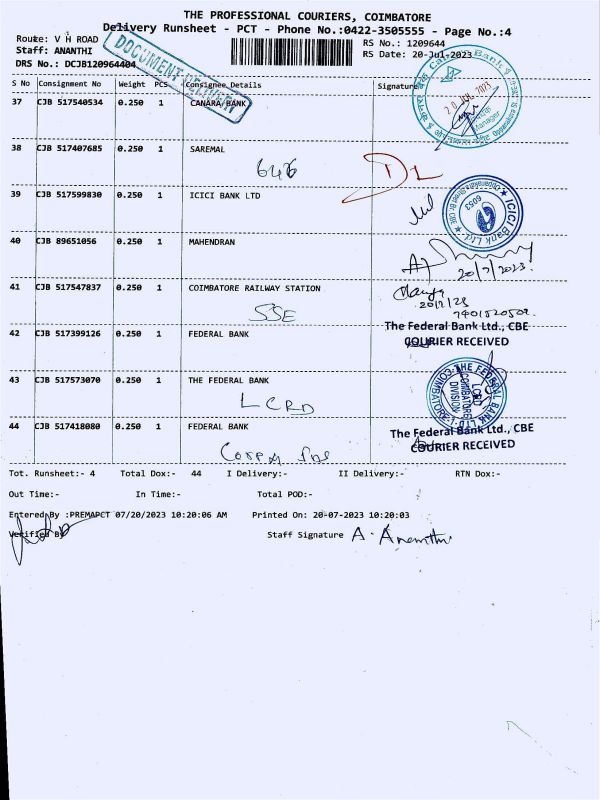 THE PROFESSIONAL COURIERS, COIMBATORE
Delivery Runsheet - PCT - Phone No.:0422-3505555 - Page No.:4
Route: V H ROAD
RS No.: 1209644
Staff: ANANTHI
RS Date: 20-Jul-2023
DRS No.: DCJB120964404
DOCUMENT
S No Consignment No Weight PCS Consignee Details Signature
37 CJB 517540534 0.250 1 CANARA BANK
Canara Bank
20 JUL 2023
Manager
38 CJB 517407685 0.250 1 SAREMAL
646
DL
39 CJB 517599830 0.250 1 ICICI BANK LTD
ICICI Bank Ltd.
6053
40 CJB 89651056 0.250 1 MAHENDRAN
20/7/2023.
41 CJB 517547837 0.250 1 COIMBATORE RAILWAY STATION
SSE
20/7/23
The Federal Bank Ltd., CBE
42 CJB 517399126 0.250 1 FEDERAL BANK
COURIER RECEIVED
43 CJB 517573070 0.250 1 THE FEDERAL BANK
LCRD
THE FEDERAL BANK LTD
LCRD
COIMBATORE
DIVISION
44 CJB 517418080 0.250 1 FEDERAL BANK
The Federal Bank Ltd., CBE
COURIER RECEIVED
Tot. Runsheet:- 4 Total Dox:- 44 I Delivery:- II Delivery:- RTN Dox:-
Out Time:- In Time:- Total POD:-
Entered By :PREMAPCT 07/20/2023 10:20:06 AM Printed On: 20-07-2023 10:20:03
Verified By
Staff Signature A. Ananthi